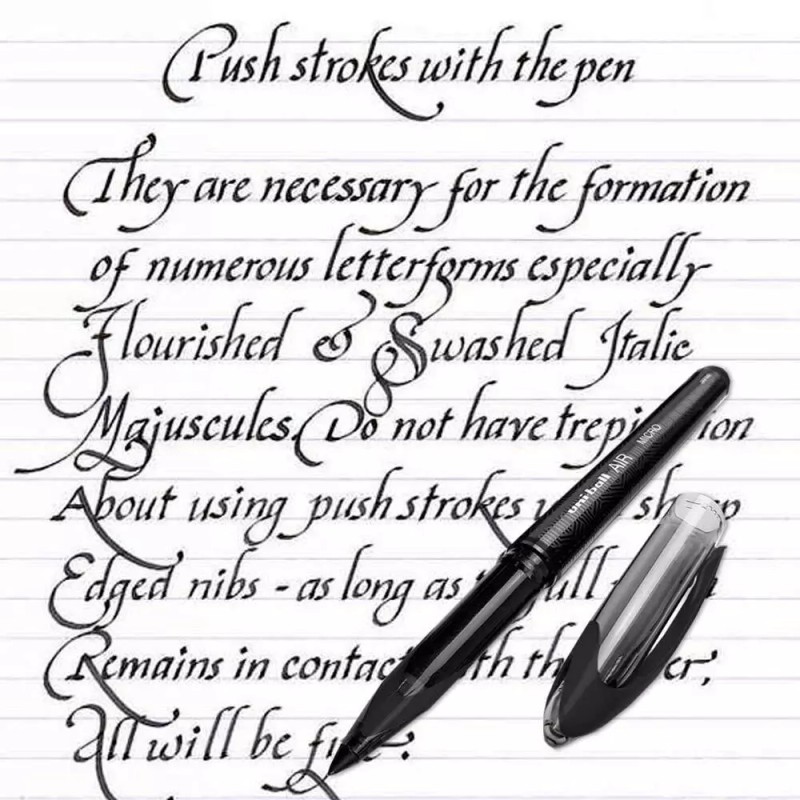 Push strokes with the pen
They are necessary for the formation
of numerous letterforms especially
Flourished & Swashed Italic
Majuscules. Do not have
About using push strokes
Edged nibs - as long as
Remains in contact
All will be
uni-ball AIR MICRO